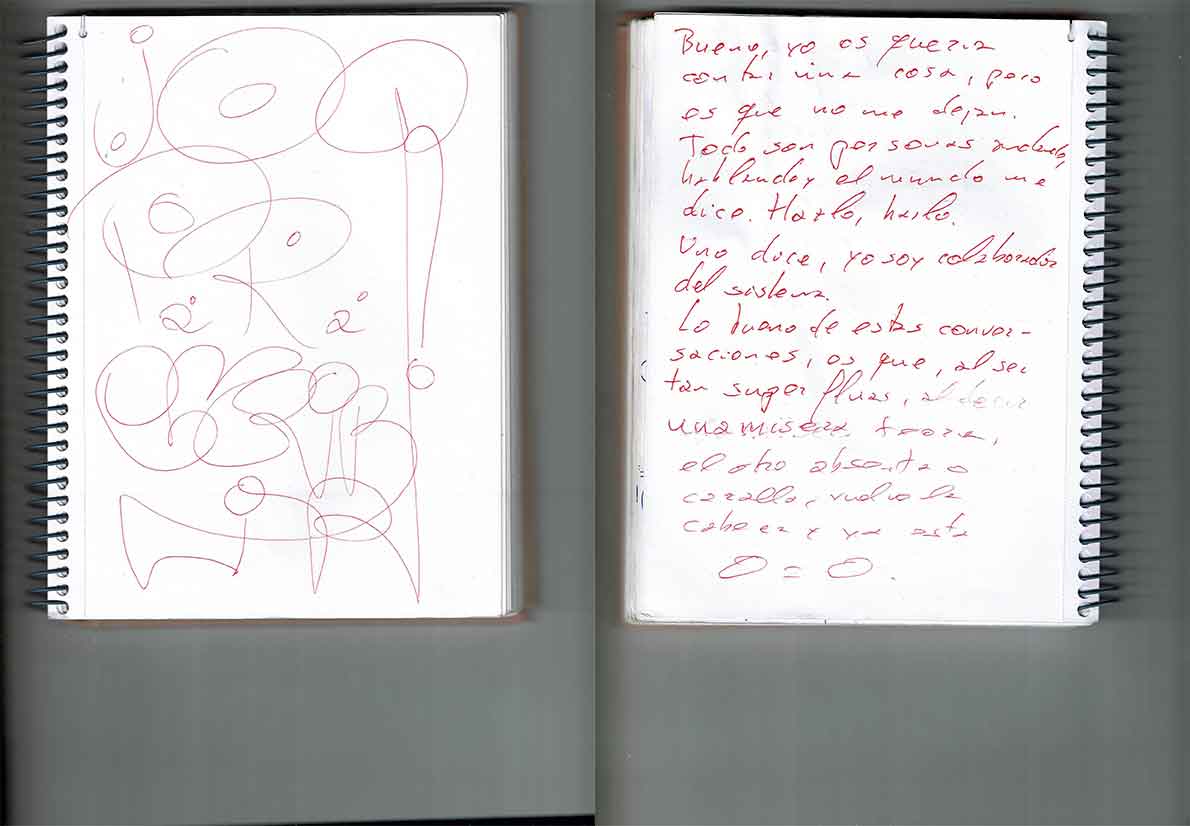 2º 2º
Bueno, yo os quería
contar una cosa, pero
es que no me dejan.
Todo son personas andando,
hablando y el mundo me
dice. Hazlo, hazlo.
Uno dice, yo soy colaborador
del sistema.
Lo bueno de estas conver-
saciones, es que, al ser
tan superfluas, al decir
una misera teoria,
el otro absorto o
caralla, vuelve la
cabeza y ya esta
0 = 0.